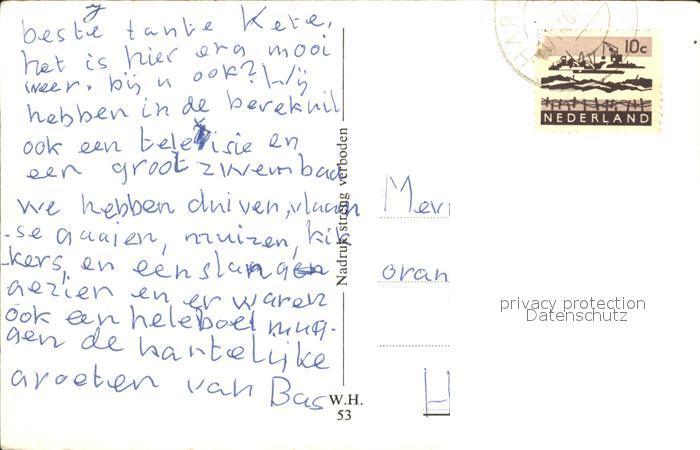 beste tante Kete,
het is hier erg mooi
weer. bij u ook? Wij
hebben in de berekuil
ook een televisie en
een groot zwembad
we hebben duiven, vlaam
-se gaaien, muizen, kik
-kers, en een slang
gezien en er waren
ook een heleboel mug-
gen de hartelijke
groeten van Bas
W.H.
53
Nadruk streng verboden
10c
NEDERLAND
Mev
oran
privacy protection
Datenschutz